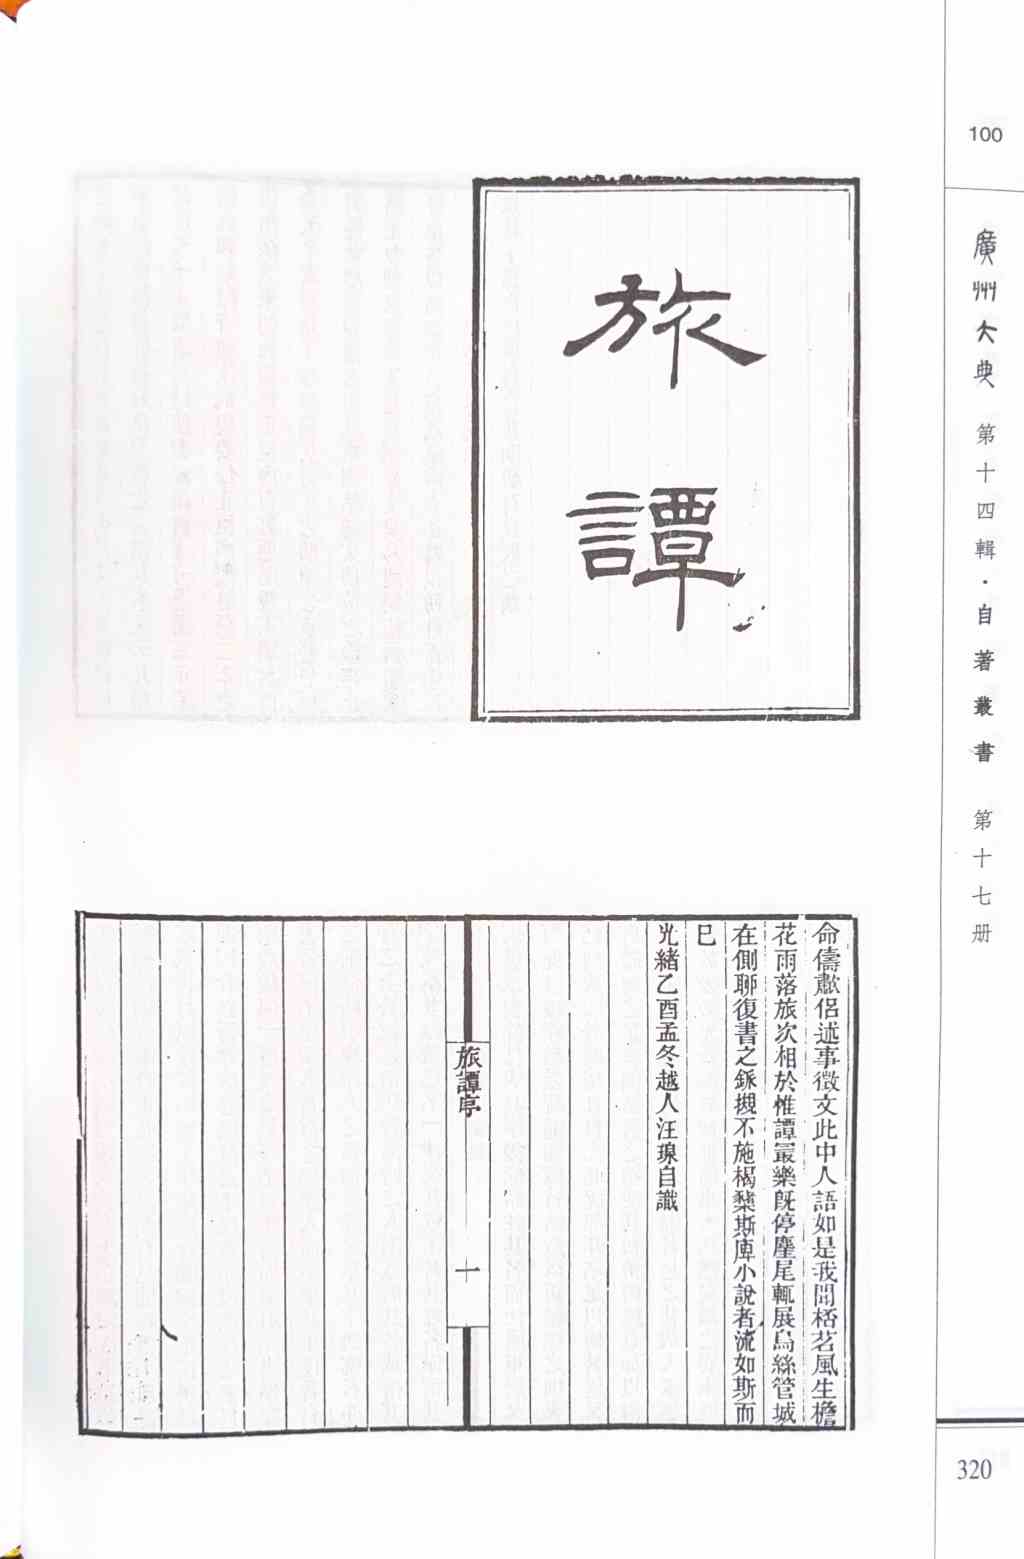 100
廣州大典 第十四輯·自著叢書 第十七册
旅譚
命儔歗侶述事徵文此中人語如是我聞桮茗風生檐
花雨落旅次相於惟譚最樂旣停麈尾輒展烏絲管城
在側聊復書之銾槻不施楬櫫斯庳小說者流如斯而
巳
光緒乙酉孟冬越人汪瑔自識
旅譚序
十
320